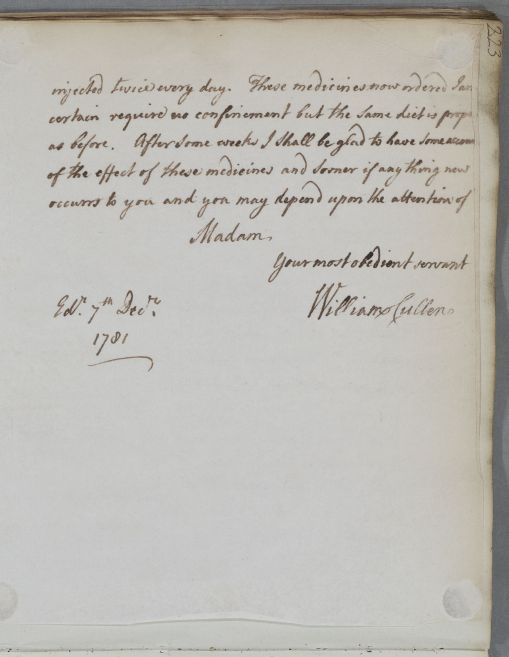 223
injected twice every day. These medicines now ordered I am
certain require no confinement but the same diet is prop
as before. After some weeks I shall be glad to have some accoun
of the effect of these medicines and sooner if any thing new
occurrs to you and you may depend upon the attention of
Madam
Your most obedient servant
William Cullen
Edr. 7th Decr.
1781